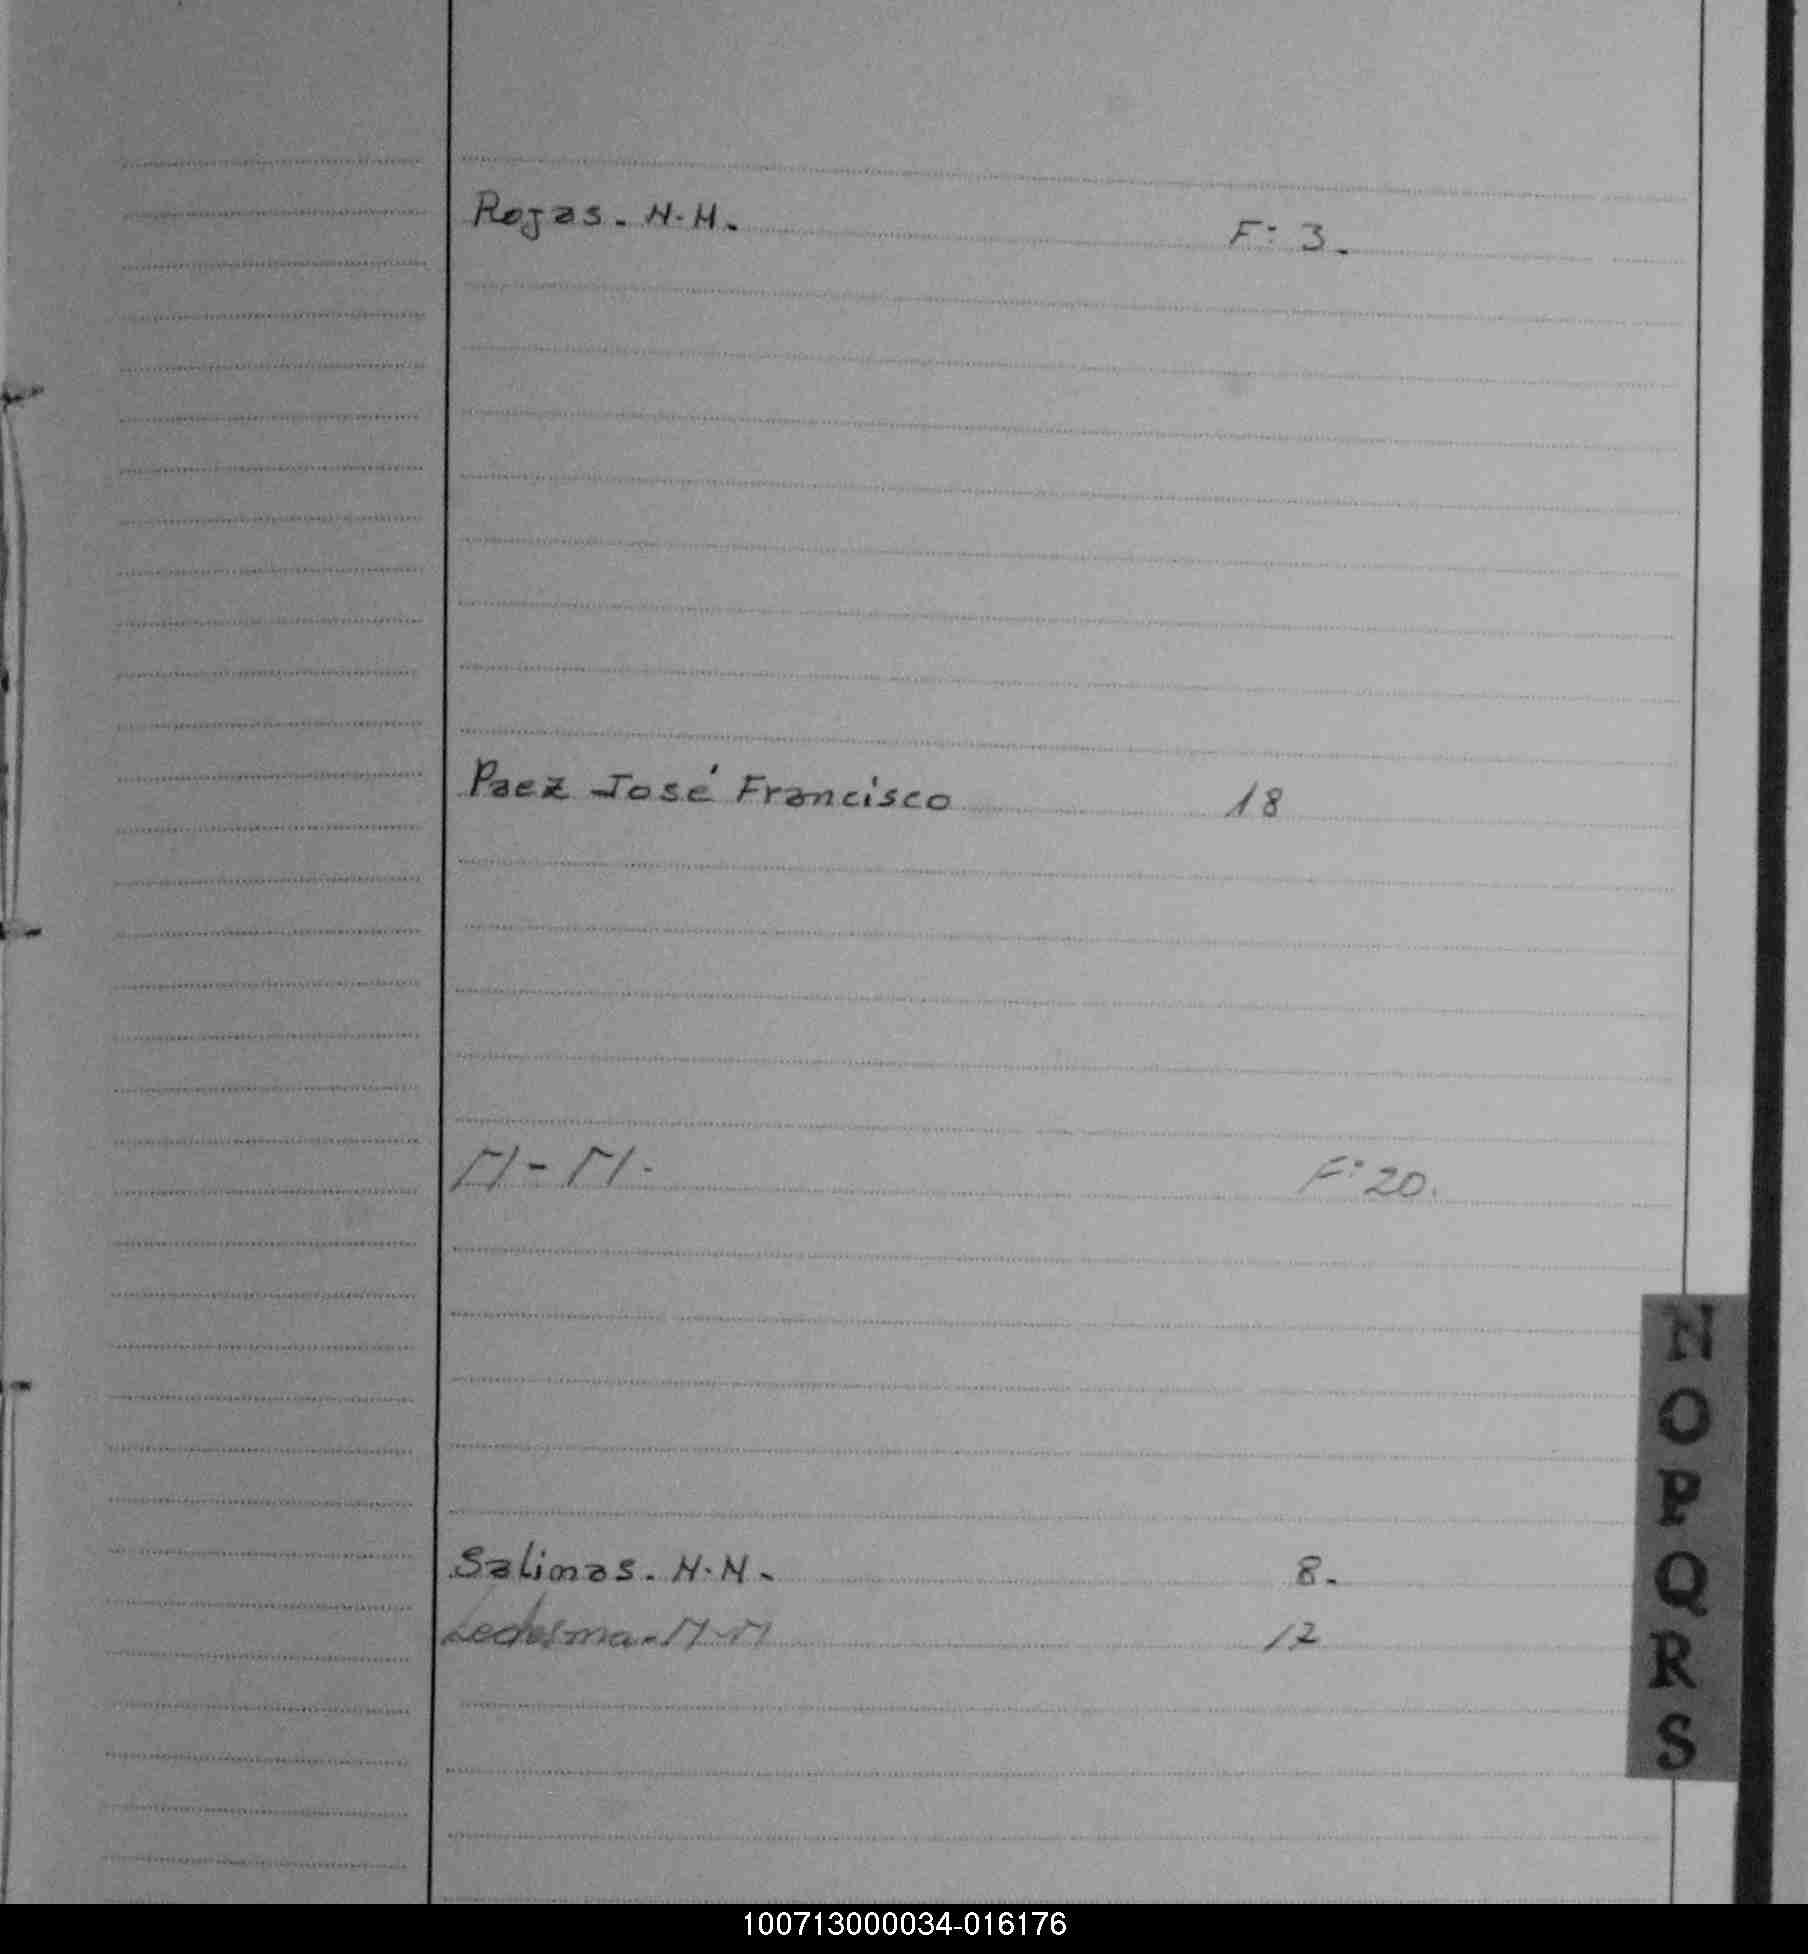 Rojas. N.N. F: 3.
Paez José Francisco 18
N-N. F: 20.
Salinas. N.N. 8.
Ledesma. N-N 12
N
O
P
Q
R
S
100713000034-016176